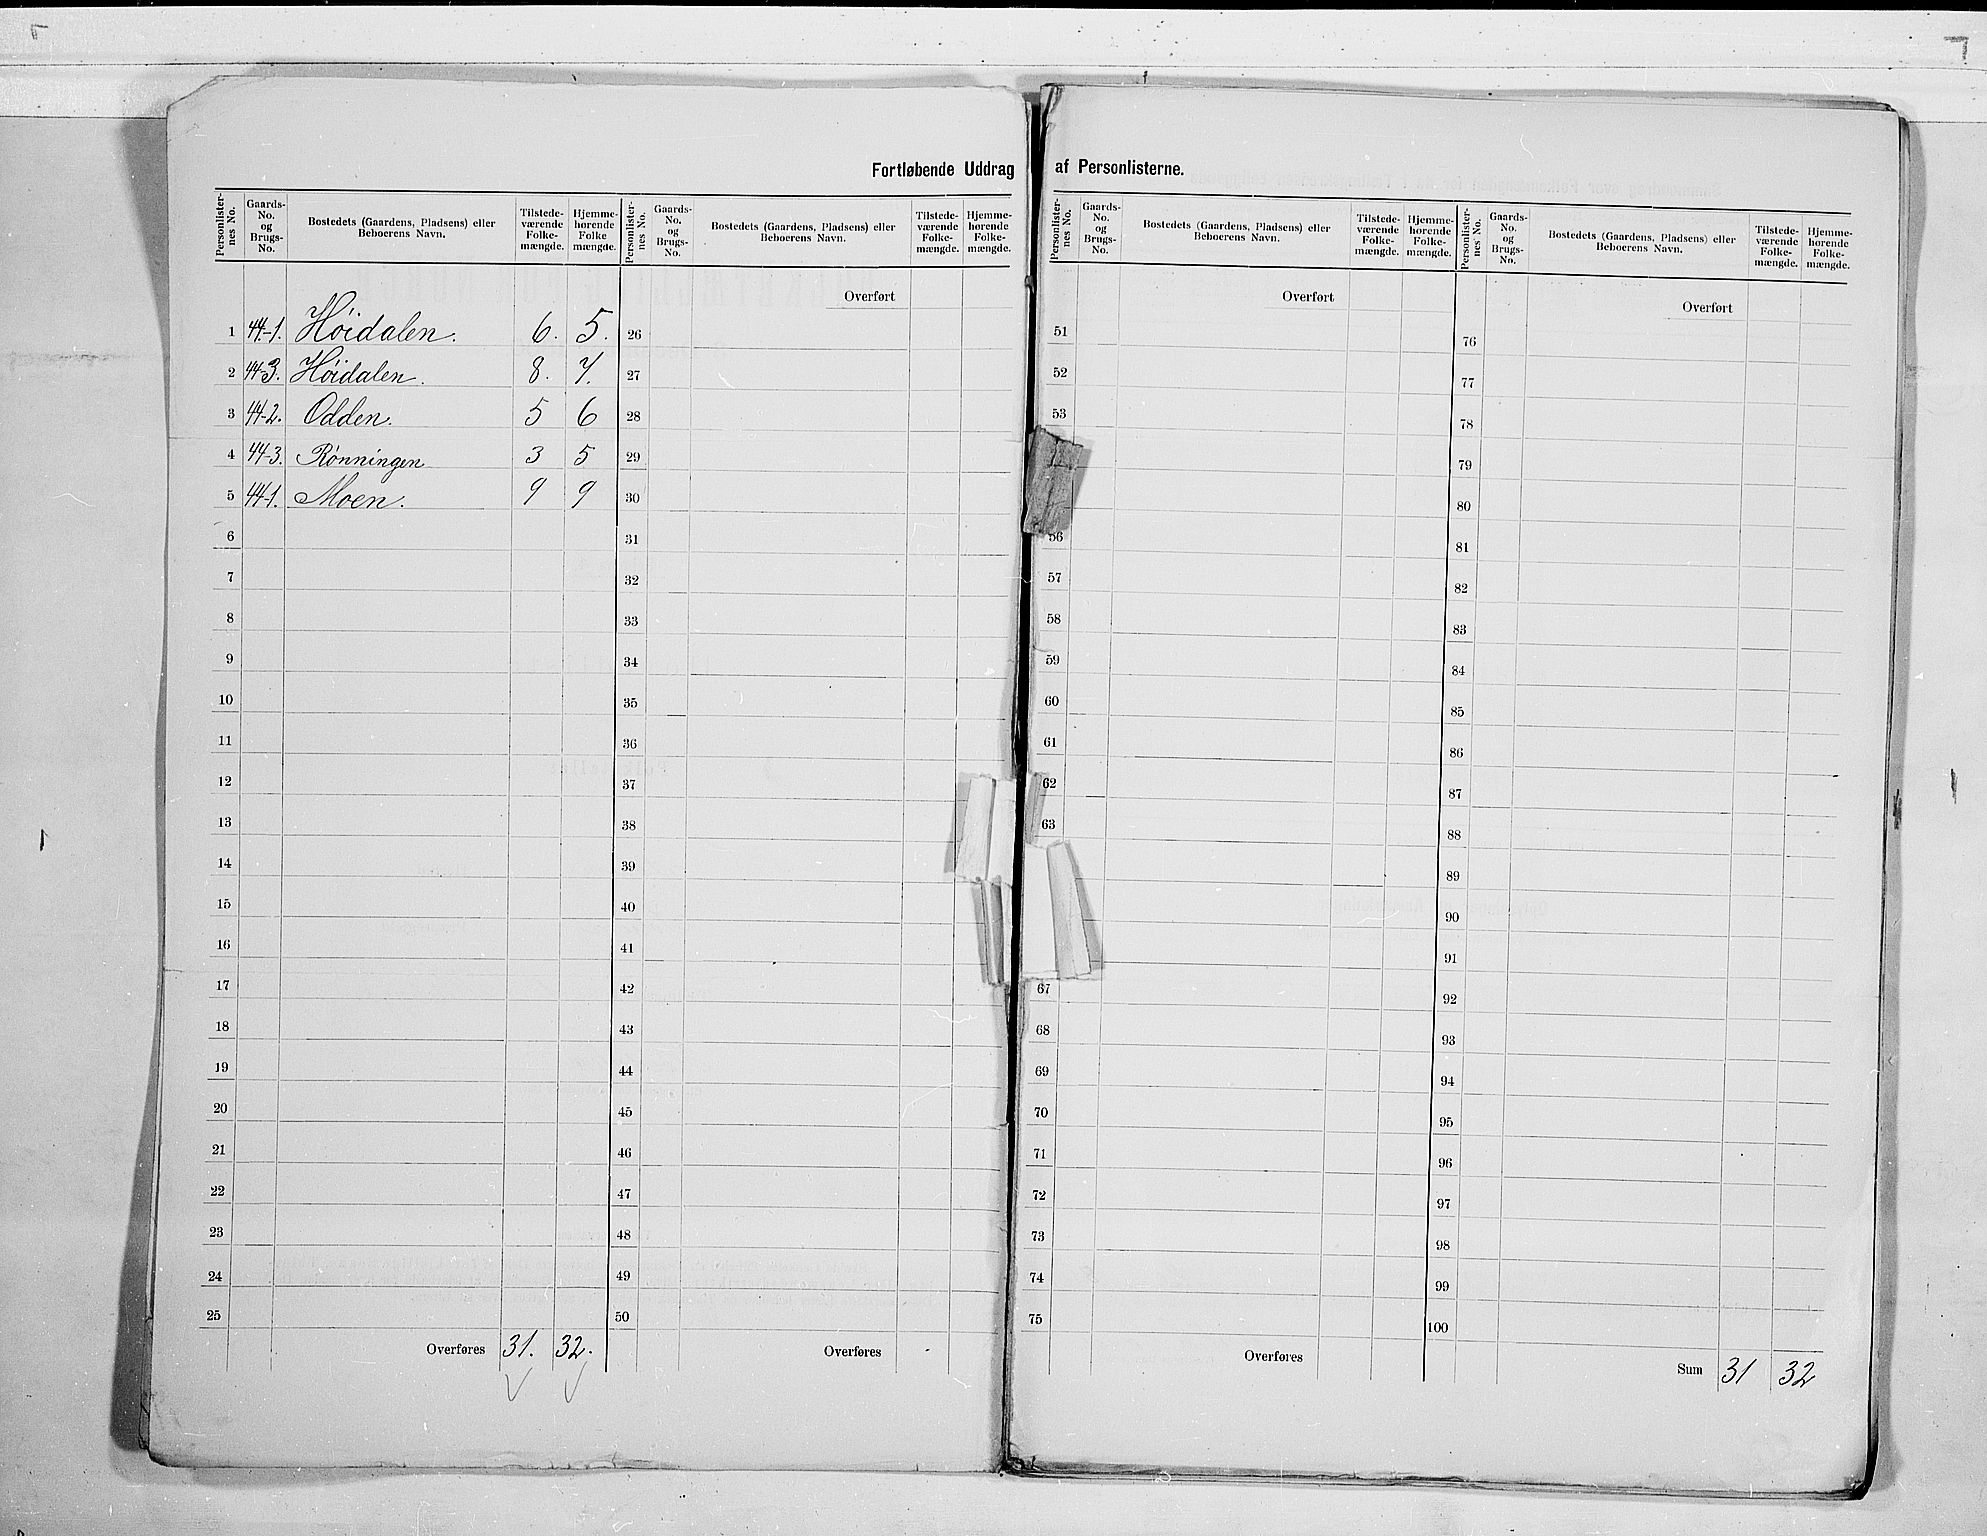 Fortløbende Uddrag af Personlisterne.
Personlister-nes No. Gaards-No. og Brugs-No. Bostedets (Gaardens, Pladsens) eller Beboerens Navn. Tilstede-værende Folke-mængde. Hjemme-hørende Folke mængde.
1 44-1. Höidalen. 6. 5.
2 44-3. Höidalen. 8. 7.
3 44-2. Odden. 5 6
4 44-3. Rönningen 3 5
5 44-1. Moen. 9 9
6
7
8
9
10
11
12
13
14
15
16
17
18
19
20
21
22
23
24
25
Overføres 31. 32.
Personlister-nes No. Gaards-No. og Brugs-No. Bostedets (Gaardens, Pladsens) eller Beboerens Navn. Tilstede-værende Folke-mængde. Hjemme-hørende Folke-mængde.
Overført
26
27
28
29
30
31
32
33
34
35
36
37
38
39
40
41
42
43
44
45
46
47
48
49
50
Overføres
Personlister-nes No. Gaards-No. og Brugs-No. Bostedets (Gaardens, Pladsens) eller Beboerens Navn. Tilstede-værende Folke-mængde. Hjemme-hørende Folke-mængde.
Overført
51
52
53
56
57
58
59
60
61
62
63
67
68
69
70
71
72
73
74
75
Overføres
Personlister-nes No. Gaards-No. og Brugs-No. Bostedets (Gaardens, Pladsens) eller Beboerens Navn. Tilstede-værende Folke-mængde. Hjemme-hørende Folke-mængde.
Overført
76
77
78
79
80
81
82
83
84
85
86
87
88
89
90
91
92
93
94
95
96
97
98
99
100
Sum 31 32